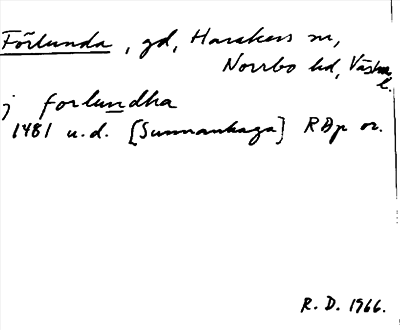 Förlunda, gd, Harakers sn,
Norrbo hd, Västm
l.
j forlundha
1481 u.d. [Sunnanhaga] RAp or.
R. D. 1966.